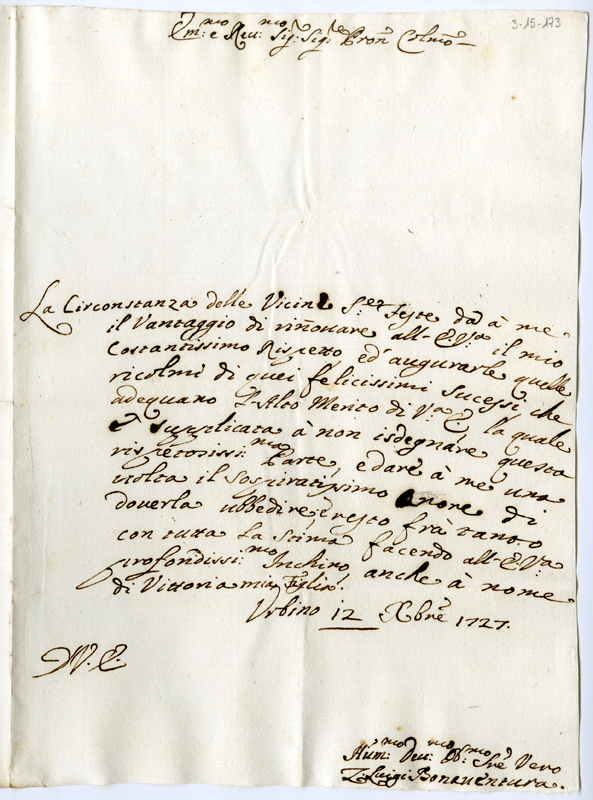 3-15-173
Em:mo e Reu:mo Sig:r Sig:re Pron Colmo
La Circonstanza delle Vicine S:te Feste dà à me
il Vantaggio di rinouare all-E.V:a il mio
Costantissimo Rispetto ed' augurarle quelle
ricolmi di quei felicissimi Sucessi, che
adequano l'Alto Merito di V:a E. la quale
è supplicata à non isdegnare questa
rispetosissi:ma Parte, e dare à me una
uolta il Sospiratissimo onore di
douerla ubbedire, e resto frà tanto
con tutta La Stima facendo all-E.V:a
profondissi:mo Inchino anche à nome
di Vittoria mia Figlia.
Vrbino 12 Xbre 1727.
V.E.
Hum:mo Deu:mo Ob:mo Sre Vero
Luigi Bonauentura.